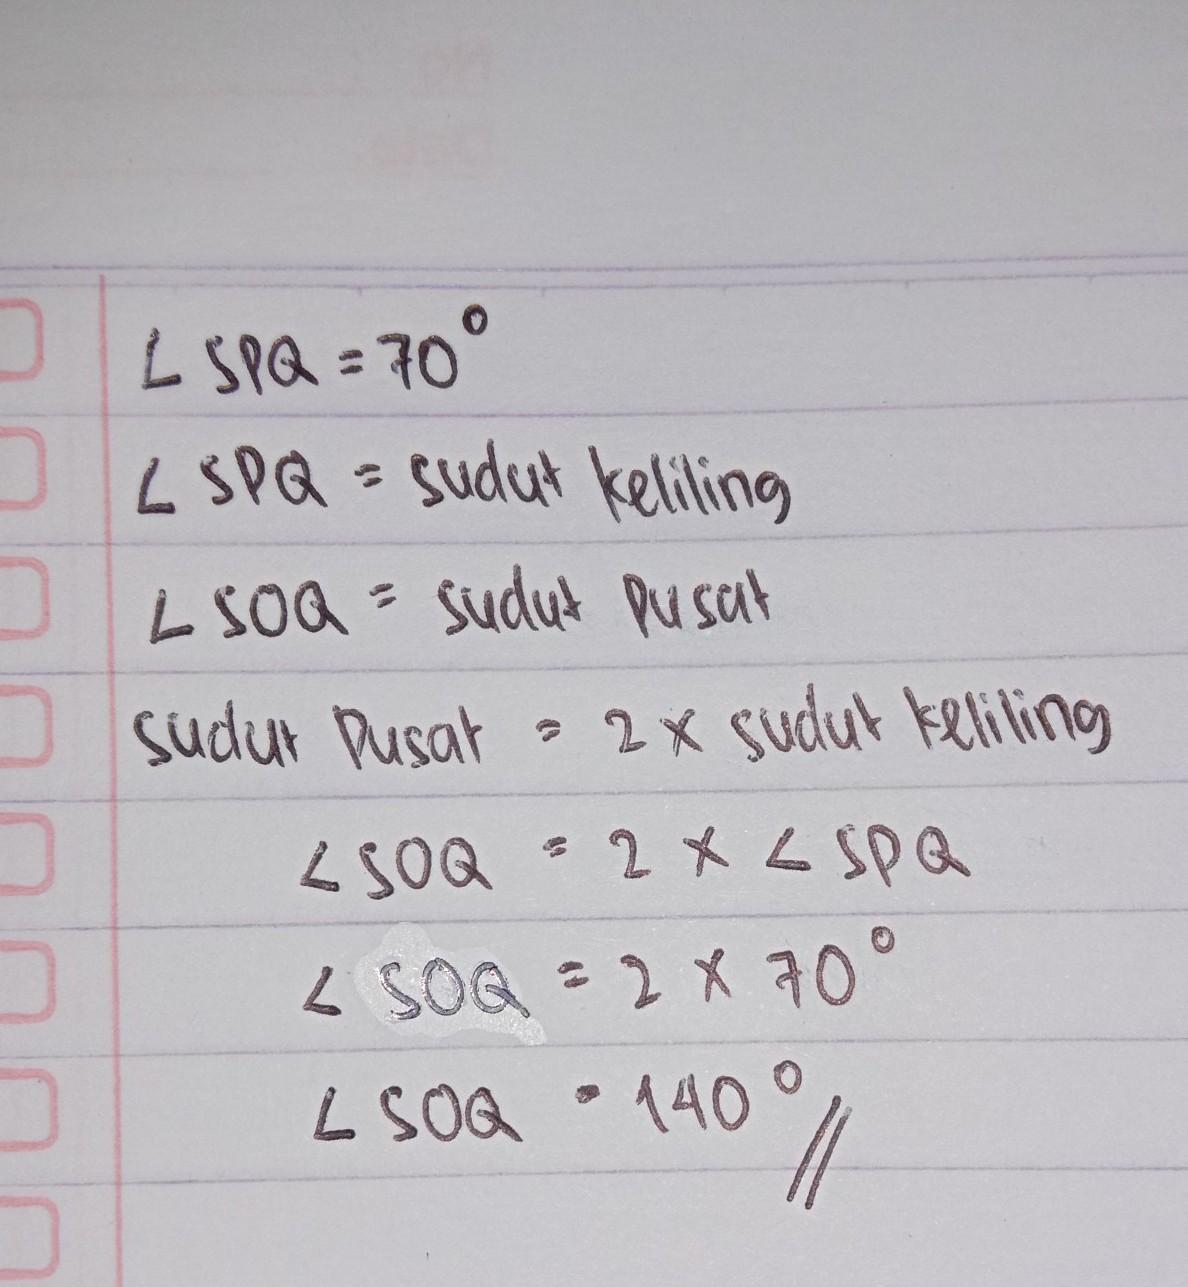 ∠ SPQ = 70°
∠ SPQ = sudut keliling
∠ SOQ = sudut pusat
sudut pusat = 2 x sudut keliling
∠ SOQ = 2 x ∠ SPQ
∠ SOQ = 2 x 70°
∠ SOQ = 140° //